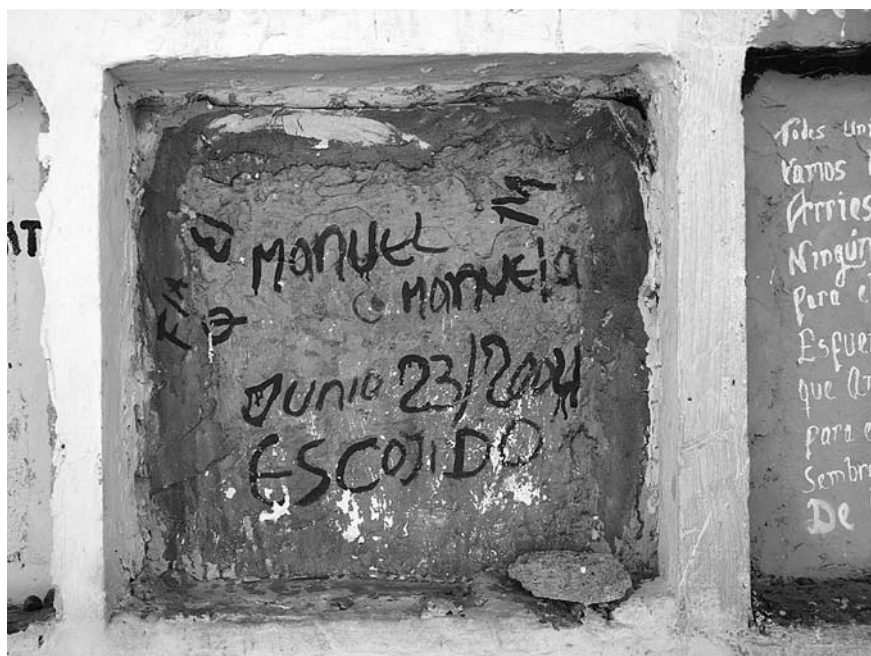 AT
MANUEL
MANUELA
JUNIO 23/2004
ESCOJIDO
14
Todos
Vamos
Arries
Ningún
Para el
Esfuer
que
para
Sembr
De